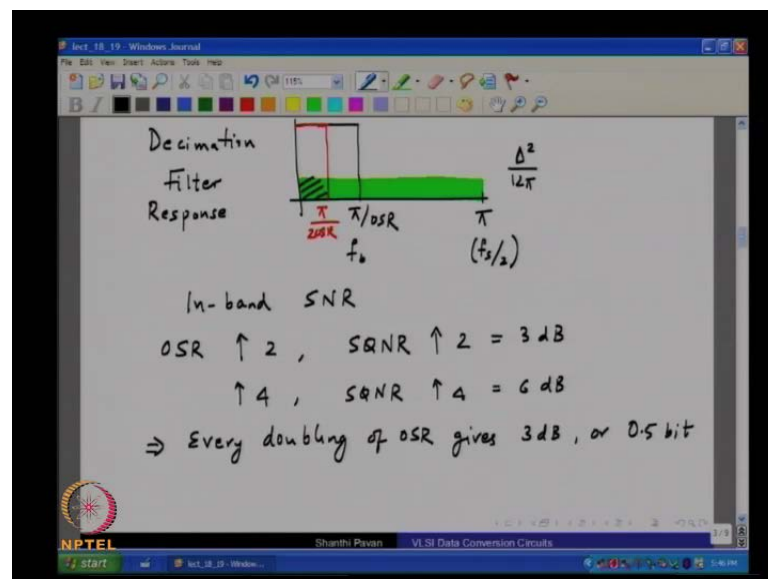 lect_18_19 - Windows Journal
File Edit View Insert Actions Tools Help
115%
B I
Decimation
Filter
Response
π/2OSR
π/OSR
f_b
π
(f_s/2)
Δ²/12π
In-band SNR
OSR ↑ 2 , SQNR ↑ 2 = 3 dB
↑ 4 , SQNR ↑ 4 = 6 dB
⇒ Every doubling of OSR gives 3 dB , or 0.5 bit
3/8
NPTEL
Shanthi Pavan VLSI Data Conversion Circuits
start lect_18_19 - Window... 5:46 PM